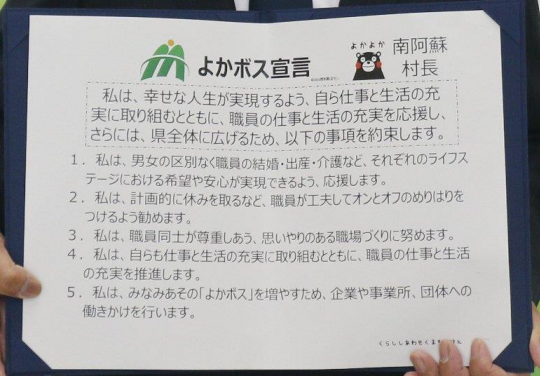 よかボス宣言
よかよか
南阿蘇
村長
私は、幸せな人生が実現するよう、自ら仕事と生活の充
実に取り組むとともに、職員の仕事と生活の充実を応援し、
さらには、県全体に広げるため、以下の事項を約束します。
1．私は、男女の区別なく職員の結婚・出産・介護など、それぞれのライフス
テージにおける希望や安心が実現できるよう、応援します。
2．私は、計画的に休みを取るなど、職員が工夫してオンとオフのめりはりを
つけるよう勧めます。
3．私は、職員同士が尊重しあう、思いやりのある職場づくりに努めます。
4．私は、自らも仕事と生活の充実に取り組むとともに、職員の仕事と生活
の充実を推進します。
5．私は、みなみあその「よかボス」を増やすため、企業や事業所、団体への
働きかけを行います。
くらししあわせくま